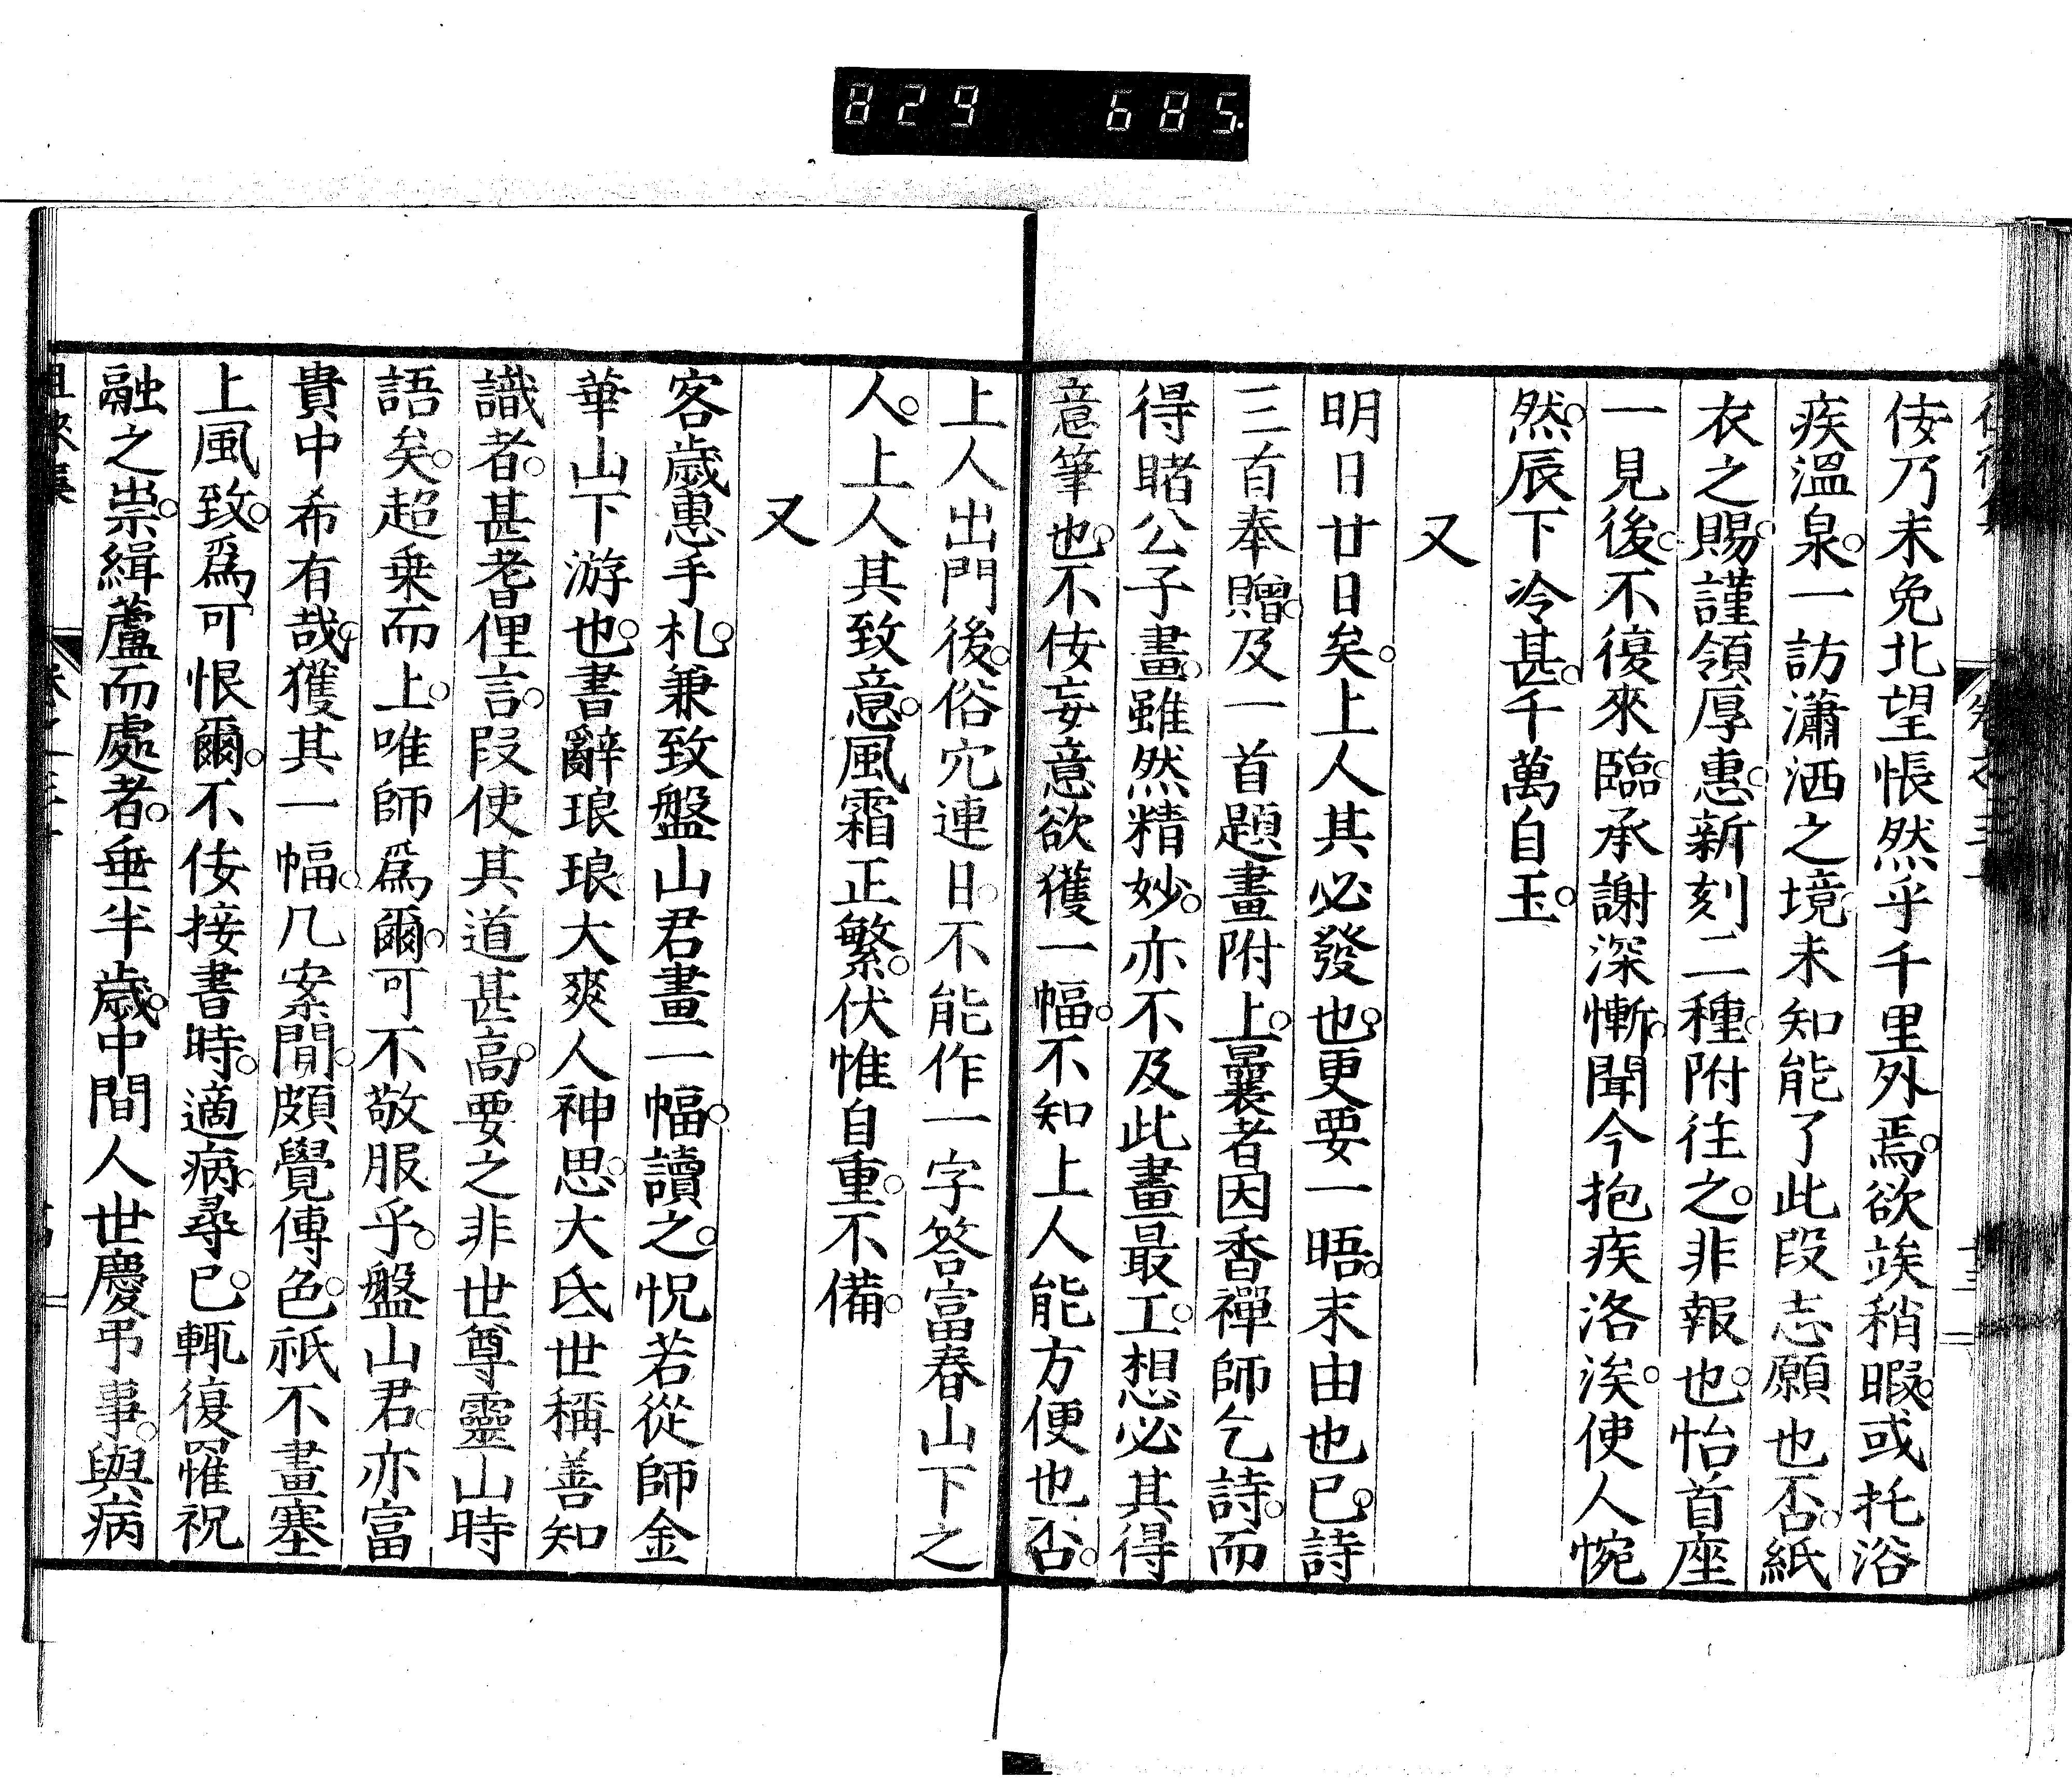 829 685
侒乃未免北望悵然乎千里外焉。欲竢稍暇。或托浴
疾溫泉。一訪瀟洒之境。未知能了此段志願也否。紙
衣之賜。謹領厚惠。新刻二種。附往之。非報也。怡首座
一見後。不復來臨。承謝深慚。聞今抱疾洛涘。使人惋
然。辰下冷甚。千萬自玉。
又
明日廿日矣。上人其必發也。更要一晤。末由也已。詩
三首奉贈。及一首題畫附上。曩者因香禪師乞詩。而
得睹公子畫。雖然精妙。亦不及此畫最工。想必其得
意筆也。不侒妄意欲獲一幅。不知上人能方便也否。
上人出門後。俗冗連日。不能作一字答富春山下之
人。上人其致意。風霜正繁。伏惟自重。不備。
又
客歲惠手札。兼致盤山君畫一幅。讀之。怳若從師金
華山下游也。書辭琅琅。大爽人神思。大氐世稱善知
識者。甚耆俚言。段使其道甚高。要之非世尊靈山時
語矣。超乘而上。唯師爲爾。可不敬服乎。盤山君。亦富
貴中希有哉。獲其一幅。几案閒。頗覺傳色。祇不畫塞
上風致。爲可恨爾。不侒接書時。適病。尋已。輒復罹祝
融之祟。緝蘆而處者。垂半歲。中間人世慶弔事。與病